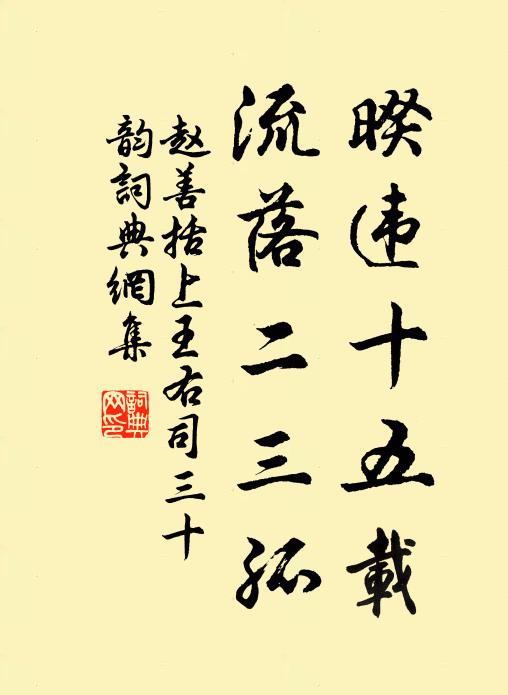 暌违十五載
流落二三孤
赵善括上王右司三十
韵詞典網集
詞典网印